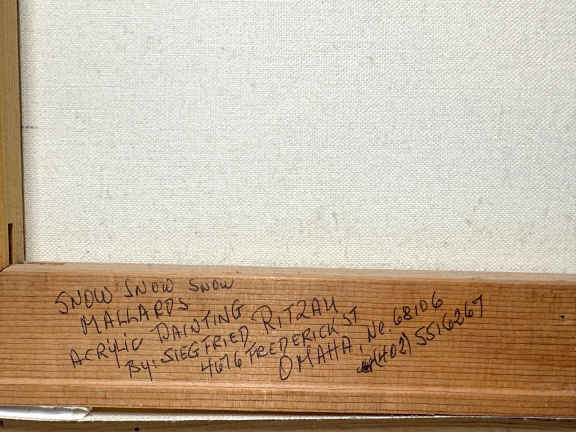 SNOW SNOW SNOW
MALLARDS
ACRYLIC PAINTING
By: SIEGFRIED RITZAU
4676 FREDERICK ST
OMAHA, Ne. 68106
(402) 5516267